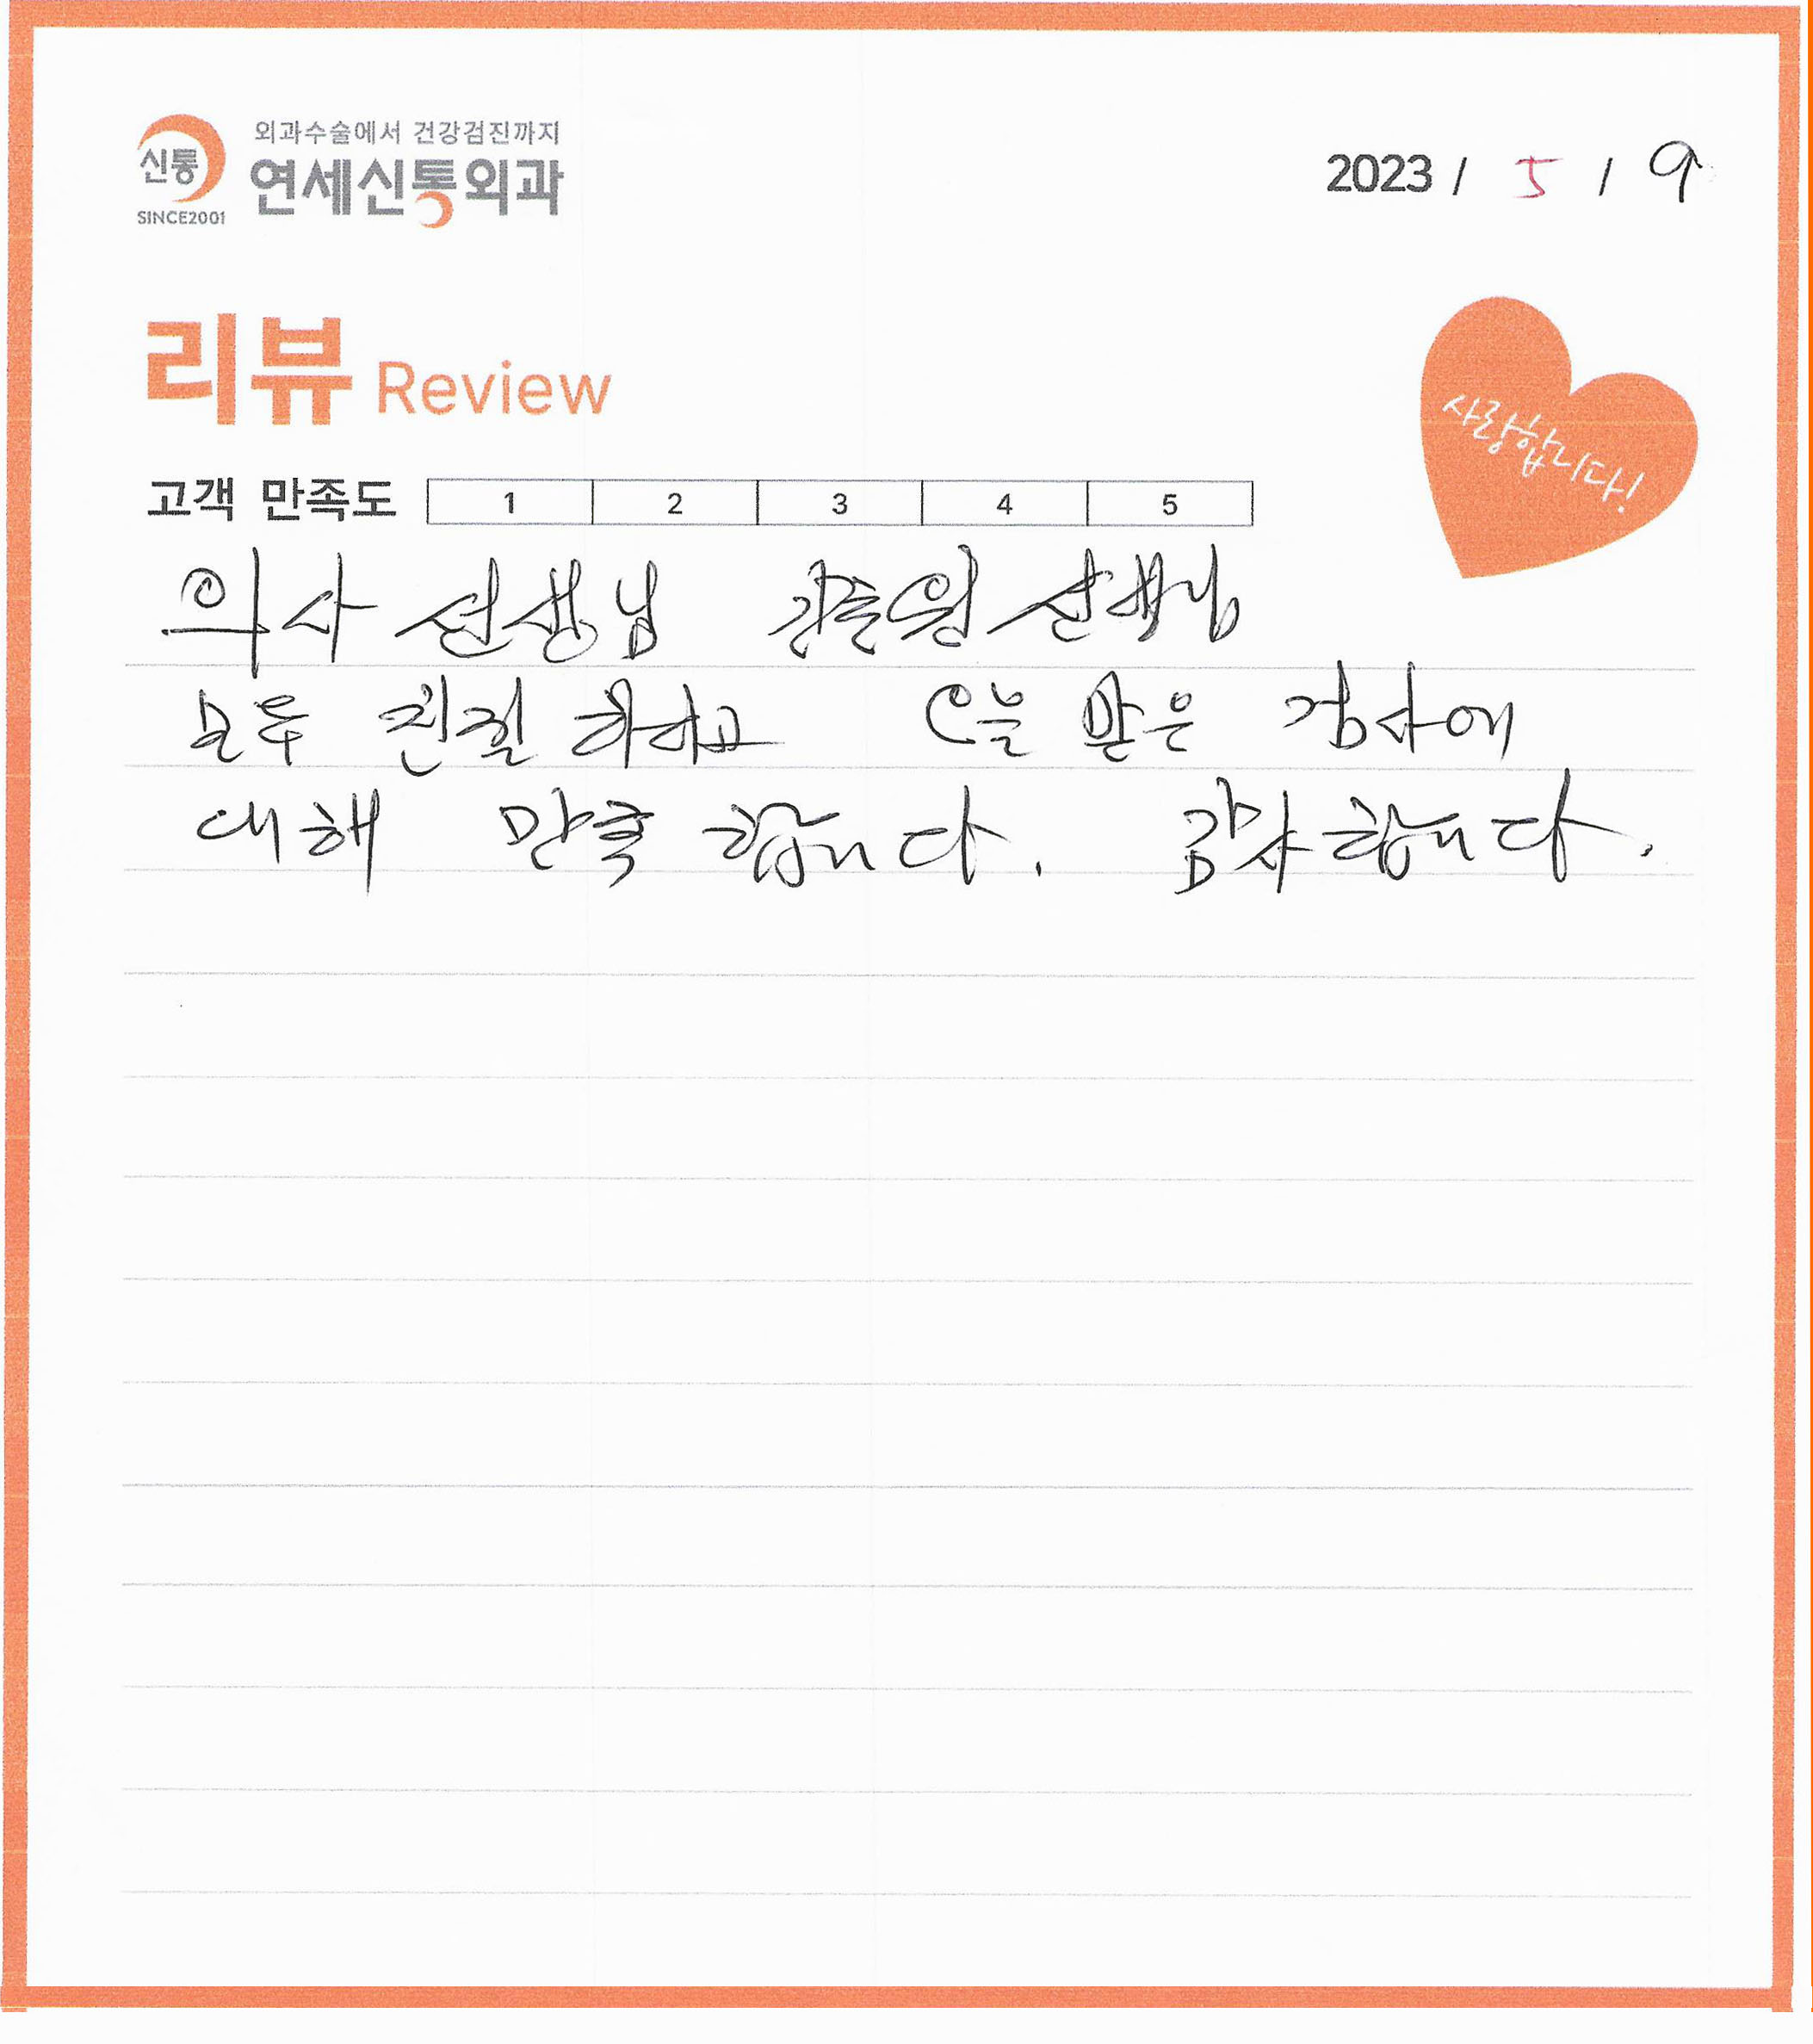 외과수술에서 건강검진까지
신통
연세신통외과
SINCE2001
2023 / 5 / 9
리뷰 Review
사랑합니다!
고객 만족도 1 2 3 4 5
의사 선생님 선생님
모두 친절 하하고 오늘 받은 검사에
대해 만족 합니다. 감사합니다.